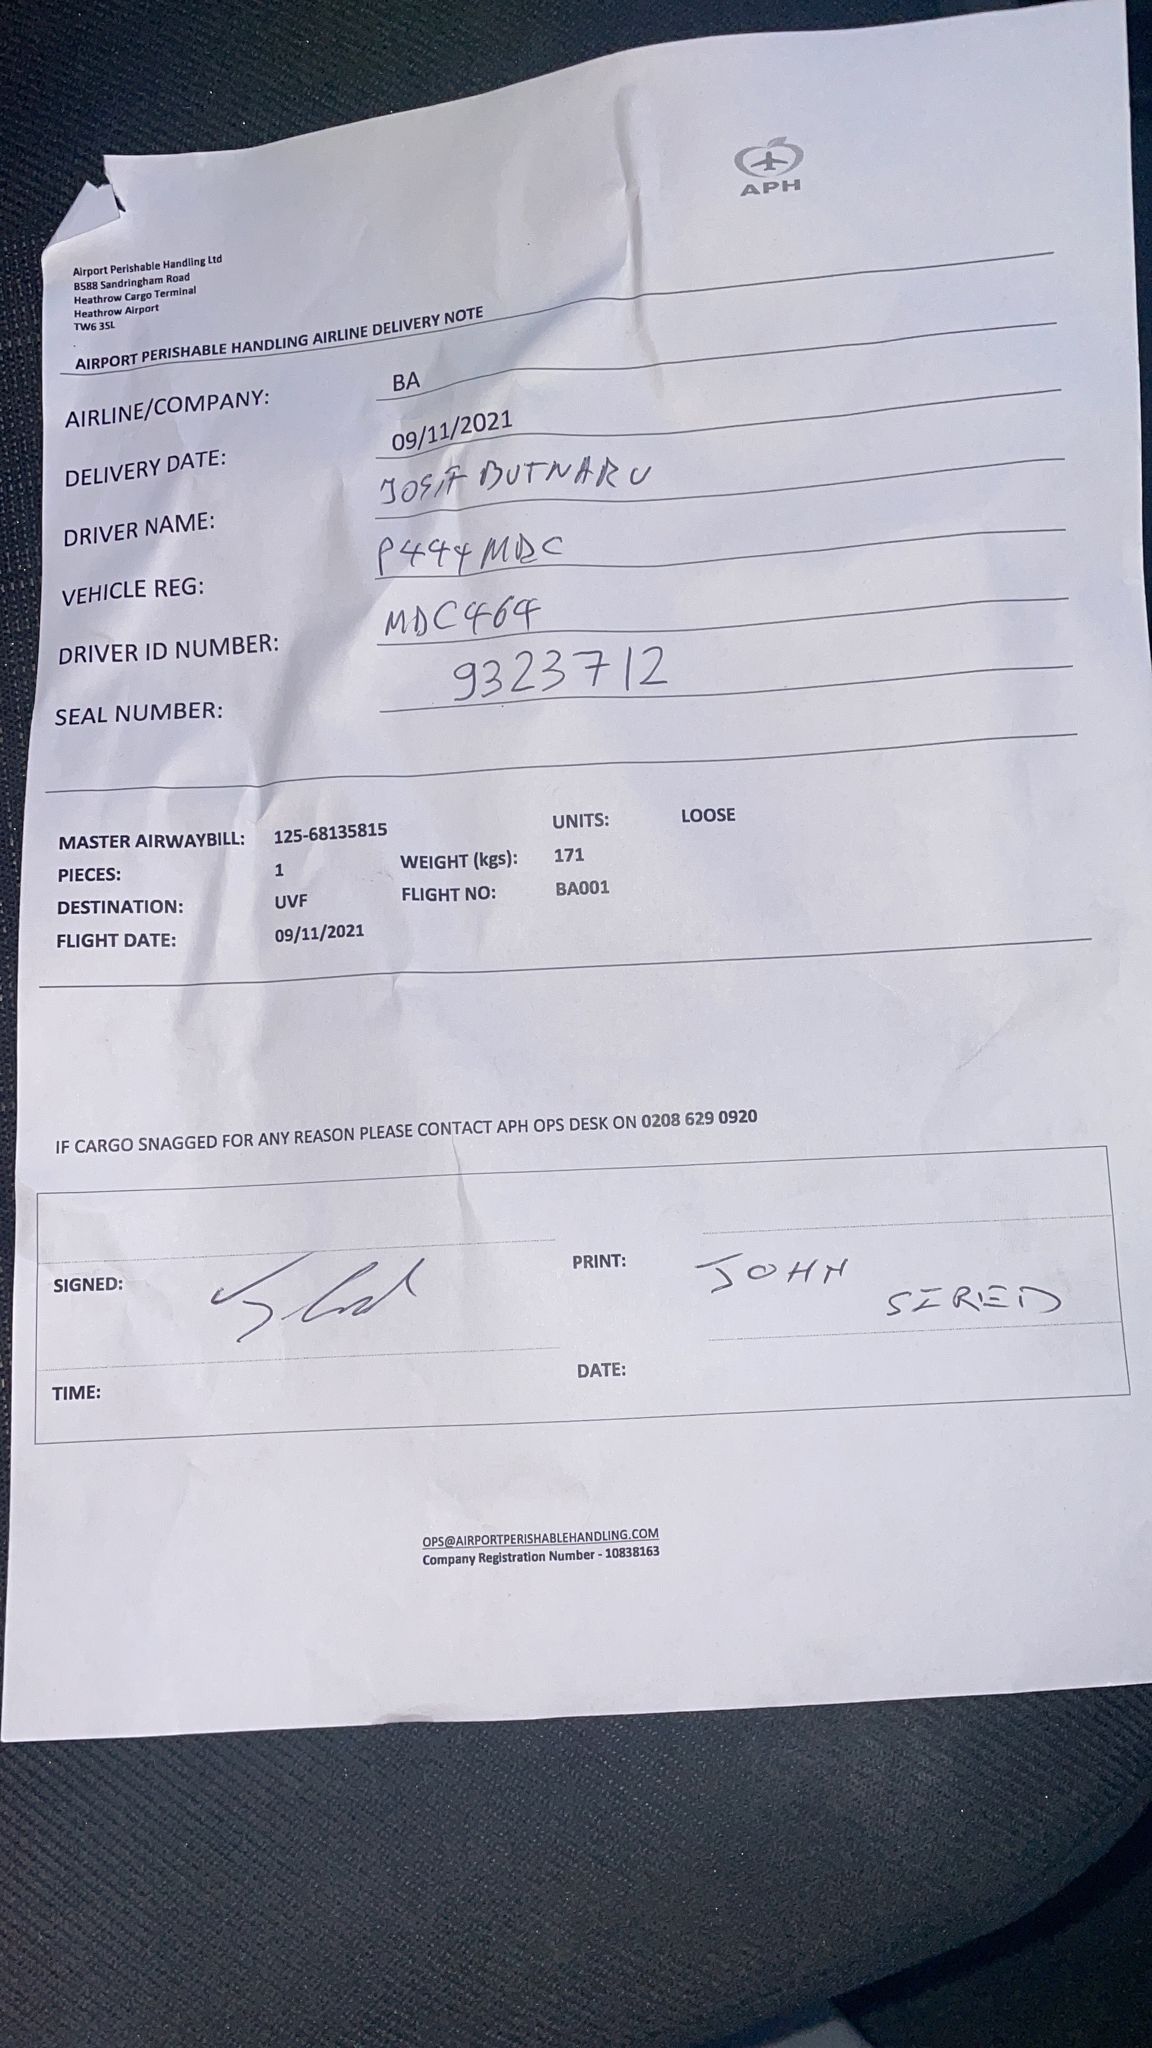 APH
Airport Perishable Handling Ltd
B588 Sandringham Road
Heathrow Cargo Terminal
Heathrow Airport
TW6 3SL
AIRPORT PERISHABLE HANDLING AIRLINE DELIVERY NOTE
AIRLINE/COMPANY: BA
DELIVERY DATE: 09/11/2021
DRIVER NAME: IOSIF BUTNARU
VEHICLE REG: P444MDC
DRIVER ID NUMBER: MDC464
SEAL NUMBER: 9323712
MASTER AIRWAYBILL: 125-68135815 UNITS: LOOSE
PIECES: 1 WEIGHT (kgs): 171
DESTINATION: UVF FLIGHT NO: BA001
FLIGHT DATE: 09/11/2021
IF CARGO SNAGGED FOR ANY REASON PLEASE CONTACT APH OPS DESK ON 0208 629 0920
SIGNED: PRINT: JOHN
SIRED
TIME: DATE:
OPS@AIRPORTPERISHABLEHANDLING.COM
Company Registration Number - 10838163